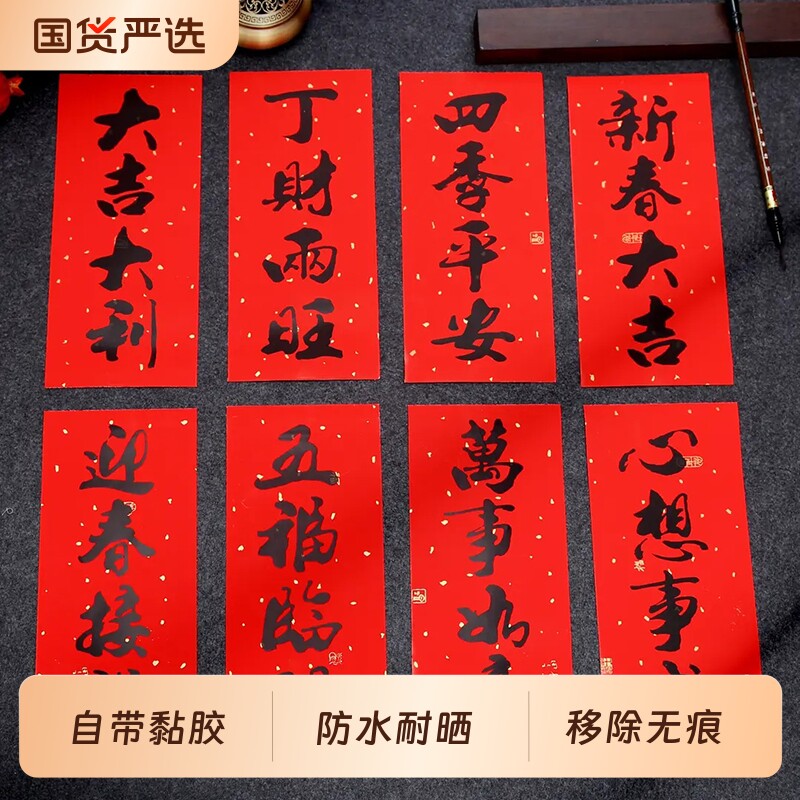 国货严选
大吉大利
丁財兩旺
四季平安
新春大吉
迎春接
五福臨
萬事如
心想事
自带黏胶
防水耐晒
移除无痕